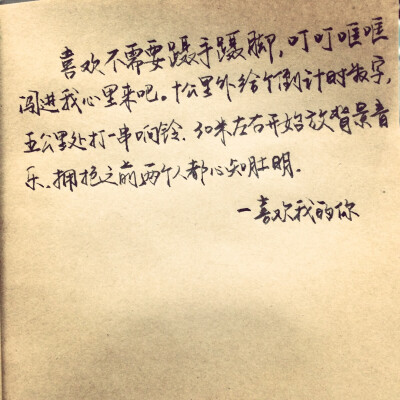 喜欢不需要蹑手蹑脚，叮叮哐哐
闯进我心里来吧。十公里外给个倒计时数字，
五公里处打一串响铃、30米左右开始放背景音
乐、拥抱之前两个人都心知肚明.
—喜欢我的你